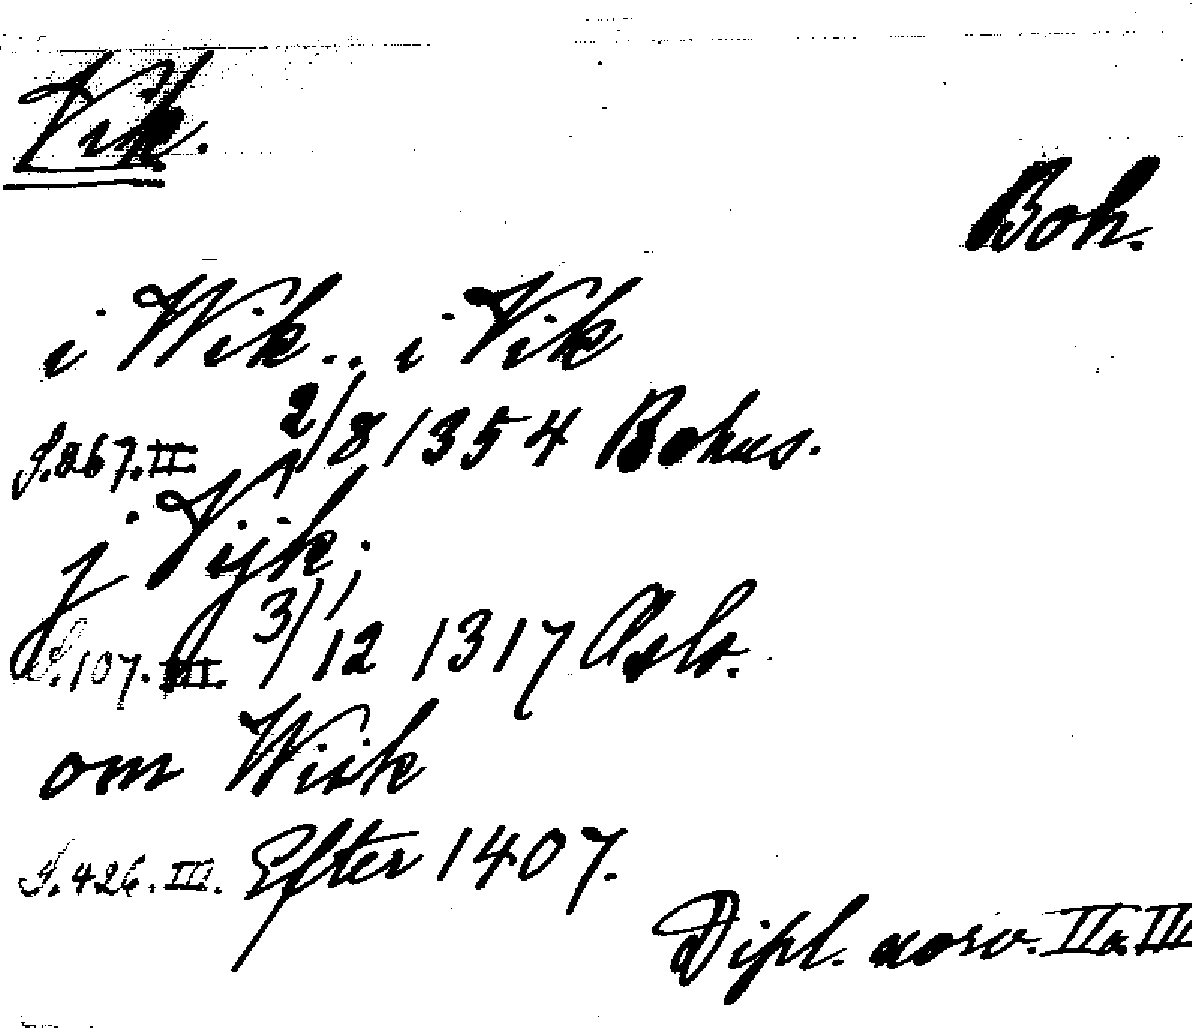 Vik.
Boh.
i Wik.. i Vik
S. 267. II. 2/8 1354 Bohus.
j Vijk.
S. 107. III. 3/12 1317 Oslo.
om Wiik
S. 426. III. Efter 1407.
Dipl. norv. II a. III